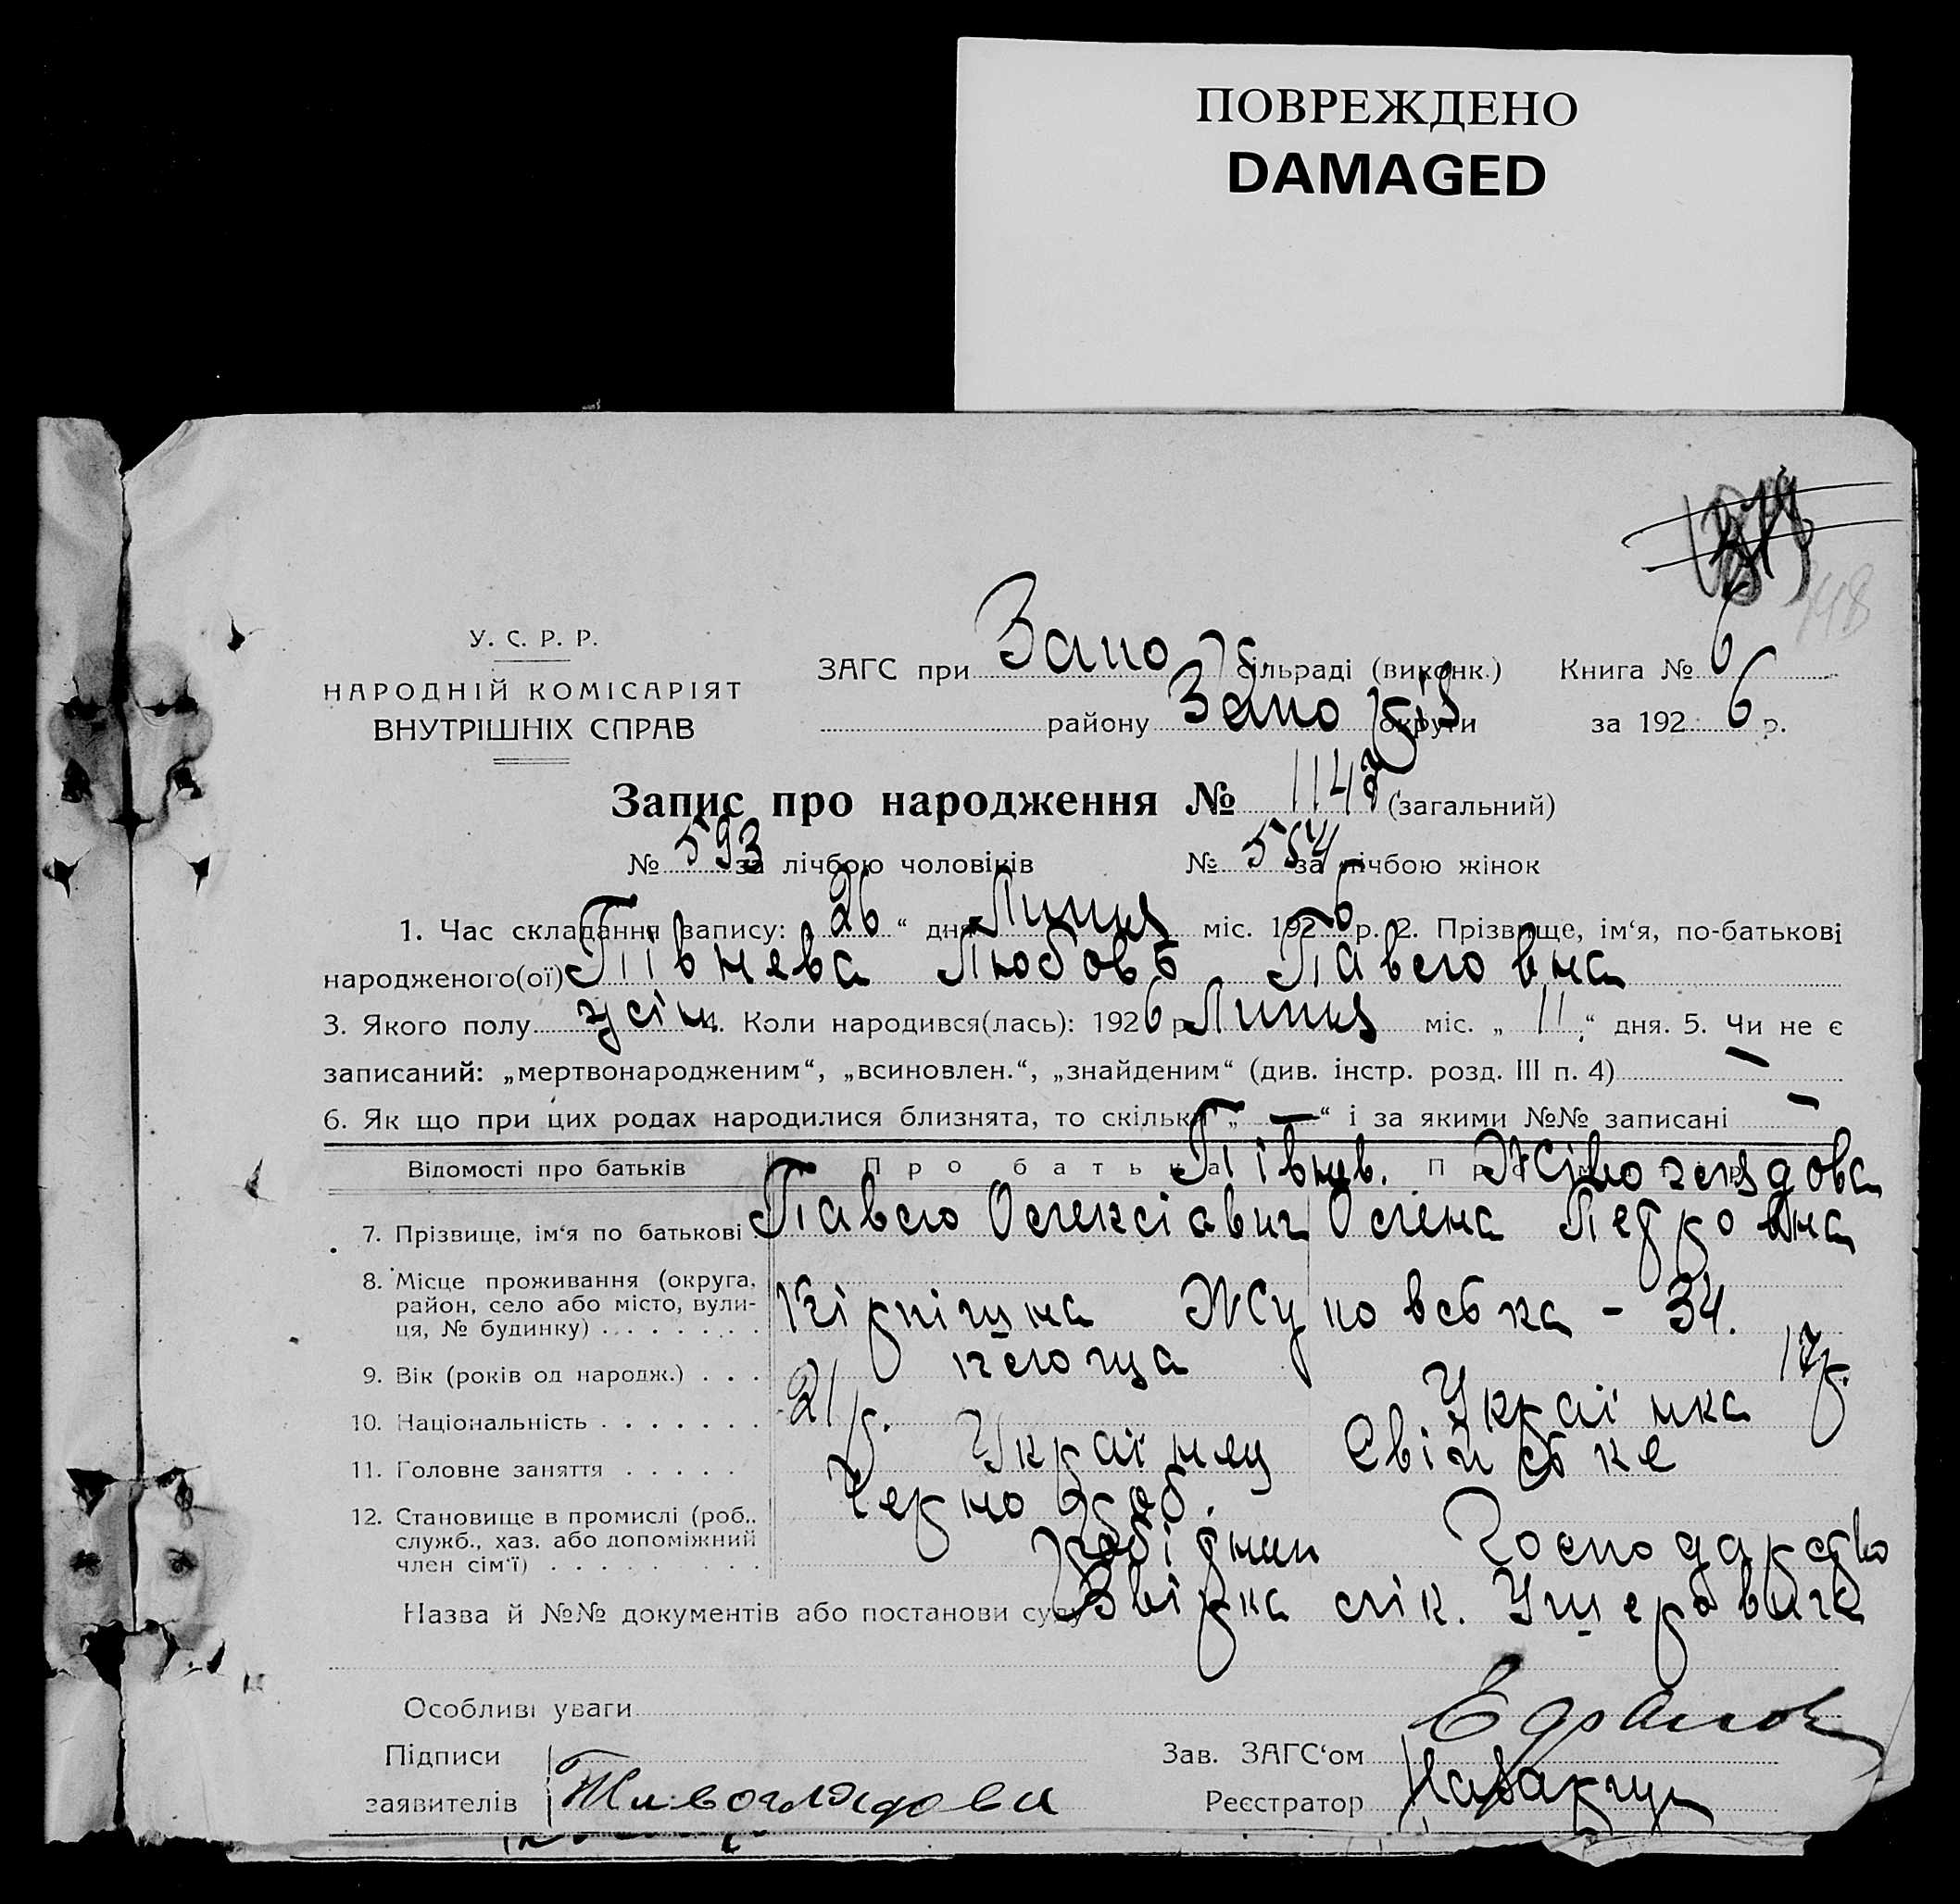 ПОВРЕЖДЕНО
DAMAGED
448
У. С. Р. Р.
НАРОДНІЙ КОМІСАРІЯТ
ВНУТРІШНІХ СПРАВ
ЗАГС при Запо сільраді (виконк.) Книга № 6
району Запо округи за 1926 р.
Запис про народження № 1147 (загальний)
№ 593 за лічбою чоловіків № 554 за лічбою жінок
1. Час складання запису: „26“ дня Липця міс. 1926 р. 2. Прізвище, ім‘я, по-батькові
народженого(ої) Півнева Любовь Павловна
3. Якого полу жін. 4. Коли народився(лась): 1926 р. Липця міс. „11“ дня. 5. Чи не є
записаний: „мертвонародженим“, „всиновлен.“, „знайденим“ (див. інстр. розд. III п. 4) –
6. Як що при цих родах народилися близнята, то скільки „ — “ і за якими №№ записані –
Відомості про батьків Про батька Півнев. Про Живоглядова
7. Прізвище, ім‘я по батькові Павло Олексіавич Олена Педровна
8. Місце проживання (округа, район, село або місто, вулиця, № будинку) Кірпічна Жуковська - 34.
площа
9. Вік (років од народж.) 21 р. 17 р.
10. Національність Українец Українка
11. Головне заняття Чернороб. Свійське
12. Становище в промислі (роб., служб., хаз. або допоміжний член сім‘ї) Робідник Господарство
Назва й №№ документів або постанови суду Звірка лік.
Особливі уваги
Підписи
заявителів Живоглядова
Зав. ЗАГС‘ом
Реєстратор